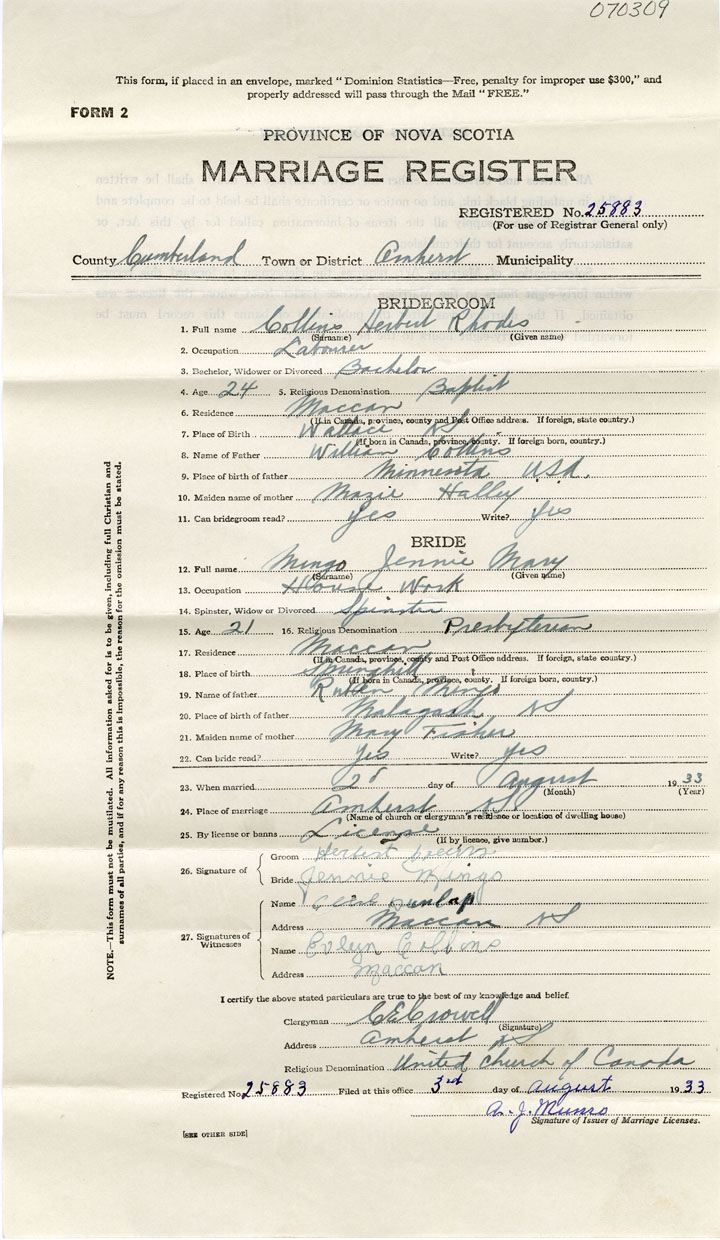 070309
This form, if placed in an envelope, marked "Dominion Statistics—Free, penalty for improper use $300," and
properly addressed will pass through the Mail "FREE."
FORM 2
PROVINCE OF NOVA SCOTIA
MARRIAGE REGISTER
REGISTERED No. 25883
(For use of Registrar General only)
County Cumberland Town or District Amherst Municipality
BRIDEGROOM
1. Full name Collins Herbert Rhodes
(Surname) (Given name)
2. Occupation Labourer
3. Bachelor, Widower or Divorced Bachelor
4. Age 24 5. Religious Denomination Baptist
6. Residence Maccan
(If in Canada, province, county and Post Office address. If foreign, state country.)
7. Place of Birth Wallace NS
(If born in Canada, province, county. If foreign born, country.)
8. Name of Father William Collins
9. Place of birth of father Minnesota USA.
10. Maiden name of mother Mazie Halley
11. Can bridegroom read? Yes Write? Yes
BRIDE
12. Full name Mingo Jennie Mary
(Surname) (Given name)
13. Occupation House Work
14. Spinster, Widow or Divorced Spinster
15. Age 21 16. Religious Denomination Presbyterian
17. Residence Maccan
(If in Canada, province, county and Post Office address. If foreign, state country.)
18. Place of birth Springhill
(If born in Canada, province, county. If foreign born, country.)
19. Name of father Ruben Mingo
20. Place of birth of father Malagash NS
21. Maiden name of mother Mary Fisher
22. Can bride read? Yes Write? yes
23. When married day of August 1933
(Month) (Year)
24. Place of marriage Amherst NS
(Name of church or clergyman's residence or location of dwelling house)
25. By license or banns License
(If by licence, give number.)
26. Signature of
Groom Herbert
Bride Jennie Mingo
27. Signatures of Witnesses
Name Dunlap
Address Maccan NS
Name Evelyn Collins
Address Maccan
I certify the above stated particulars are true to the best of my knowledge and belief.
Clergyman C E Crowell
(Signature)
Address Amherst NS
Religious Denomination United Church of Canada
Registered No. 25883 Filed at this office 3rd day of August 1933
A. J. Munro
Signature of Issuer of Marriage Licenses.
[SEE OTHER SIDE]
NOTE.—This form must not be mutilated. All information asked for is to be given, including full Christian and
surnames of all parties, and if for any reason this is impossible, the reason for the omission must be stated.